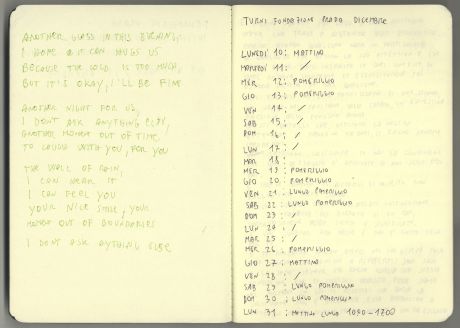 ANOTHER GLASS IN THIS EVENING,
I HOPE THAT IT CAN HUGS US
BECAUSE THE COLD IS TOO MUCH,
BUT IT'S OKAY, I'LL BE FINE
ANOTHER NIGHT FOR US,
I DON'T ASK ANYTHING ELSE,
ANOTHER MOMENT OUT OF TIME
TO COULD WITH YOU, FOR YOU
THE WALL OF RAIN,
I CAN HEAR IT
I CAN FEEL YOU
YOUR NICE SMILE, YOUR
MOMENT OUT OF BOUNDARIES
I DONT ASK ANYTHING ELSE
TURNI FONDAZIONE PRADA DICEMBRE
LUNEDÌ 10: MATTINO
MARTEDÌ 11: /
MER 12: POMERIGGIO
GIO 13: POMERIGGIO
VEN 14: /
SAB 15: /
DOM 16: /
LUN 17: /
MAR 18:
MER 19: POMERIGGIO
GIO 20: POMERIGGIO
VEN 21: LUNGO POMERIGGIO
SAB 22: LUNGO POMERIGGIO
DOM 23: /
LUN 24: /
MAR 25: /
MER 26: POMERIGGIO
GIO 27: MATTINO
VEN 28: /
SAB 29: LUNGO POMERIGGIO
DOM 30: LUNGO POMERIGGIO
LUN 31: MATTINO LUNGO